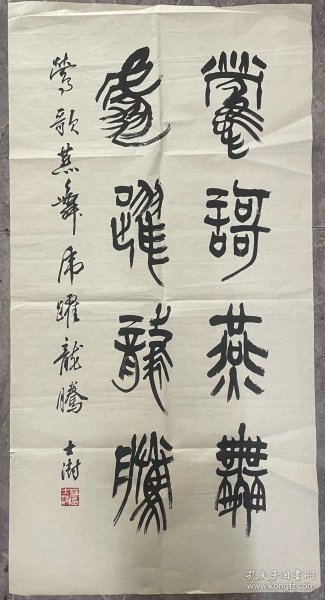 莺謌燕舞
虎躍龍騰
莺歌燕舞虎躍龍騰
士澍
孔夫子旧书网